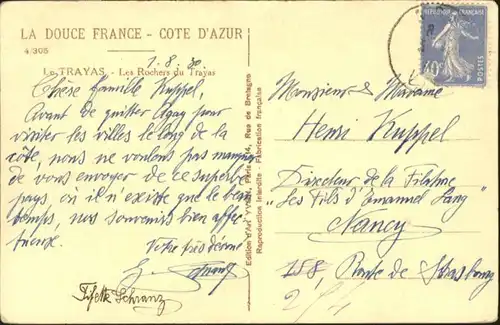 LA DOUCE FRANCE - COTE D'AZUR
4/305
Le TRAYAS - Les Rochers du Trayas
1.8.30
Chère famille Kuppel,
Avant de quitter Agay pour
visiter les villes le long de la
côte, nous ne voulons pas manquer
de vous envoyer de ce superbe
pays, où il n'existe que le beau
temps, nos souvenirs bien affec-
tueux.
Votre très dévoué
Fifette Schranz
Edition d'Art YVON, Paris, 14, Rue de Bretagne
Reproduction Interdite - Fabrication française
REPUBLIQUE FRANÇAISE
POSTES
Monsieur & Madame
Henri Kuppel
Directeur de la Filature
"Les Fils d'Emanuel Lang"
Nancy
158, Route de Strasbourg